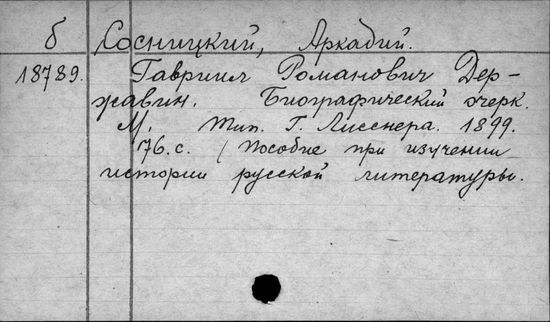 б Сосницкий, Аркадий.
18789. Гавриил Романович Дер-
жавин. Биографический очерк.
М. Тип. Г. Лисснера. 1899.
76. с. (Пособие при изучении
истории русской литературы.